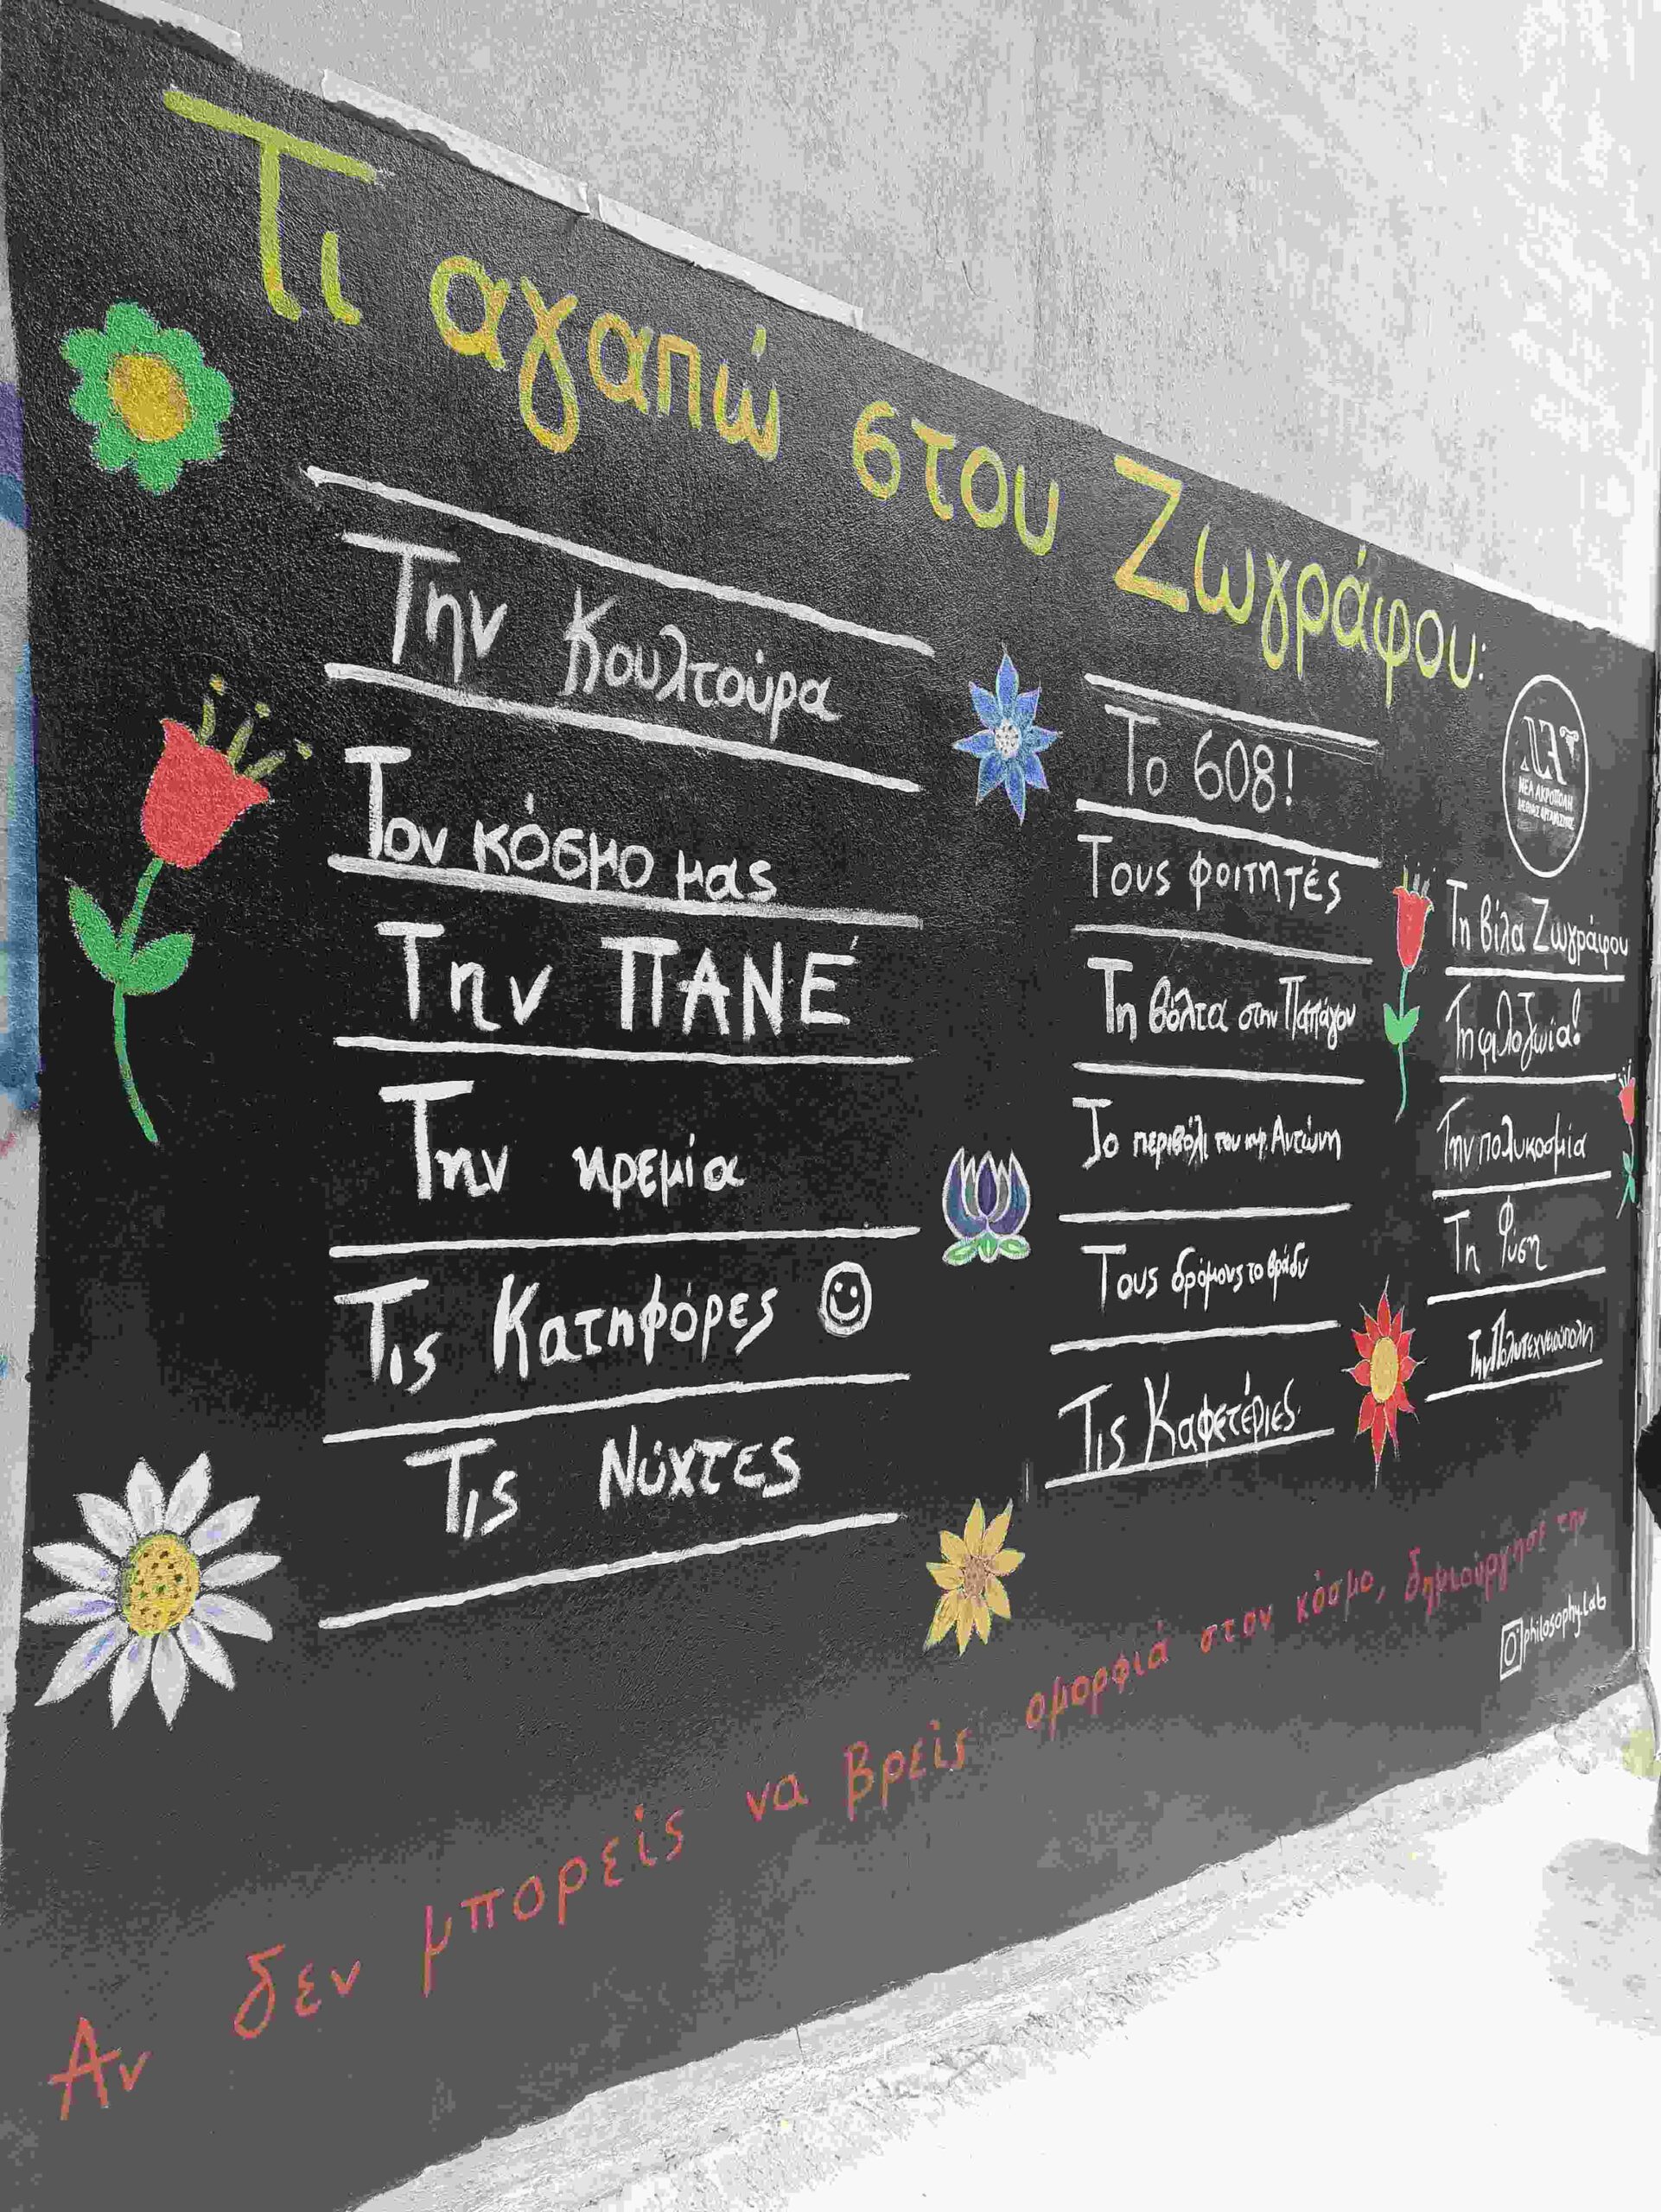 Τι αγαπώ στου Ζωγράφου:
Την Κουλτούρα
Τον κόσμο μας
Την ΠΑΝΕ΄
Την ηρεμία
Τις Κατηφόρες
Τις Νύχτες
Το 608!
Τους φοιτητές
Τη βόλτα στην Παπάγου
Το περιβόλι του κυρ. Αντώνη
Τους δρόμους το βράδυ
Τις Καφετέριες
ΝΑ
ΝΕΑ ΑΚΡΟΠΟΛΗ
ΔΙΕΘΝΗΣ ΟΡΓΑΝΙΣΜΟΣ
Τη βίλα Ζωγράφου
Τη φιλοζωία!
Την πολυκοσμία
Τη Φύση
Την Πολυτεχνειούπολη
Αν δεν μπορείς να βρείς ομορφιά στον κόσμο, δημιούργησε την
philosophy.lab